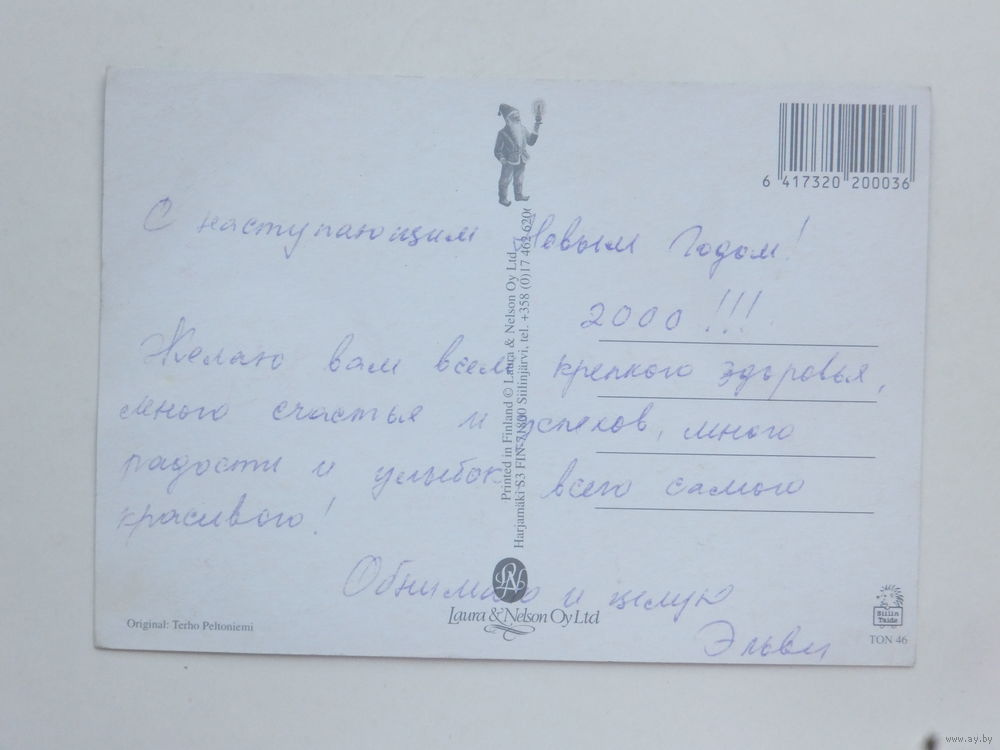 6 417320 200036
С наступающим Новым Годом!
2000!!!
Желаю вам всем крепкого здоровья,
много счастья и успехов, много
радости и улыбок всего самого
красивого!
Обнимаю и целую
Эльви
Printed in Finland © Laura & Nelson Oy Ltd
Harjamäki S3 FIN-71800 Siilinjärvi, tel. +358 (0)17 462 620
LN
Laura & Nelson Oy Ltd
Original: Terho Peltoniemi
Siilin
Taide
TON 46
www.ay.by